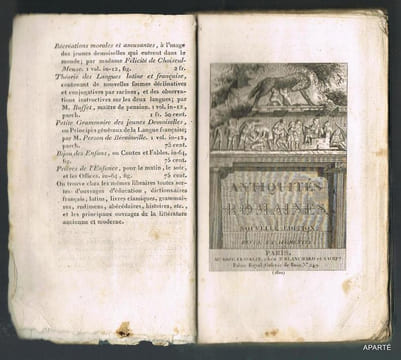 Récréations morales et amusantes, à l'usage
des jeunes demoiselles qui entrent dans le
monde; par madame Félicité de Choiseul-
Meuse. 1 vol. in-12, fig. 3 fr.
Théorie des Langues latine et française,
contenant de nouvelles formes déclinatives
et conjugatives par racines, et des observa-
tions instructives sur les deux langues; par
M. Buffet, maître de pension. 1 vol. in-12,
parch. 1 fr. 50 cent.
Petite Grammaire des jeunes Demoiselles,
ou Principes généraux de la Langue française;
par M. Person de Bérainville. 1 vol. in-12,
parch. 75 cent.
Bijou des Enfans, ou Contes et Fables. in-64,
fig. 75 cent.
Prières de l'Enfance, pour le matin, le soir,
et les Offices. in-64, fig. 75 cent.
On trouve chez les mêmes libraires toutes sor-
tes d'ouvrages d'éducation, dictionnaires
français, latins, livres classiques, grammai-
res, rudimens, abécédaires, histoires, etc.,
et les principaux ouvrages de la littérature
ancienne et moderne.
ANTIQUITÉS
ROMAINES,
NOUVELLE ÉDITION,
REVUE ET AUGMENTÉE
PARIS,
Palais Royal, Galerie de Bois, N° 249
(1810)
APARTÉ